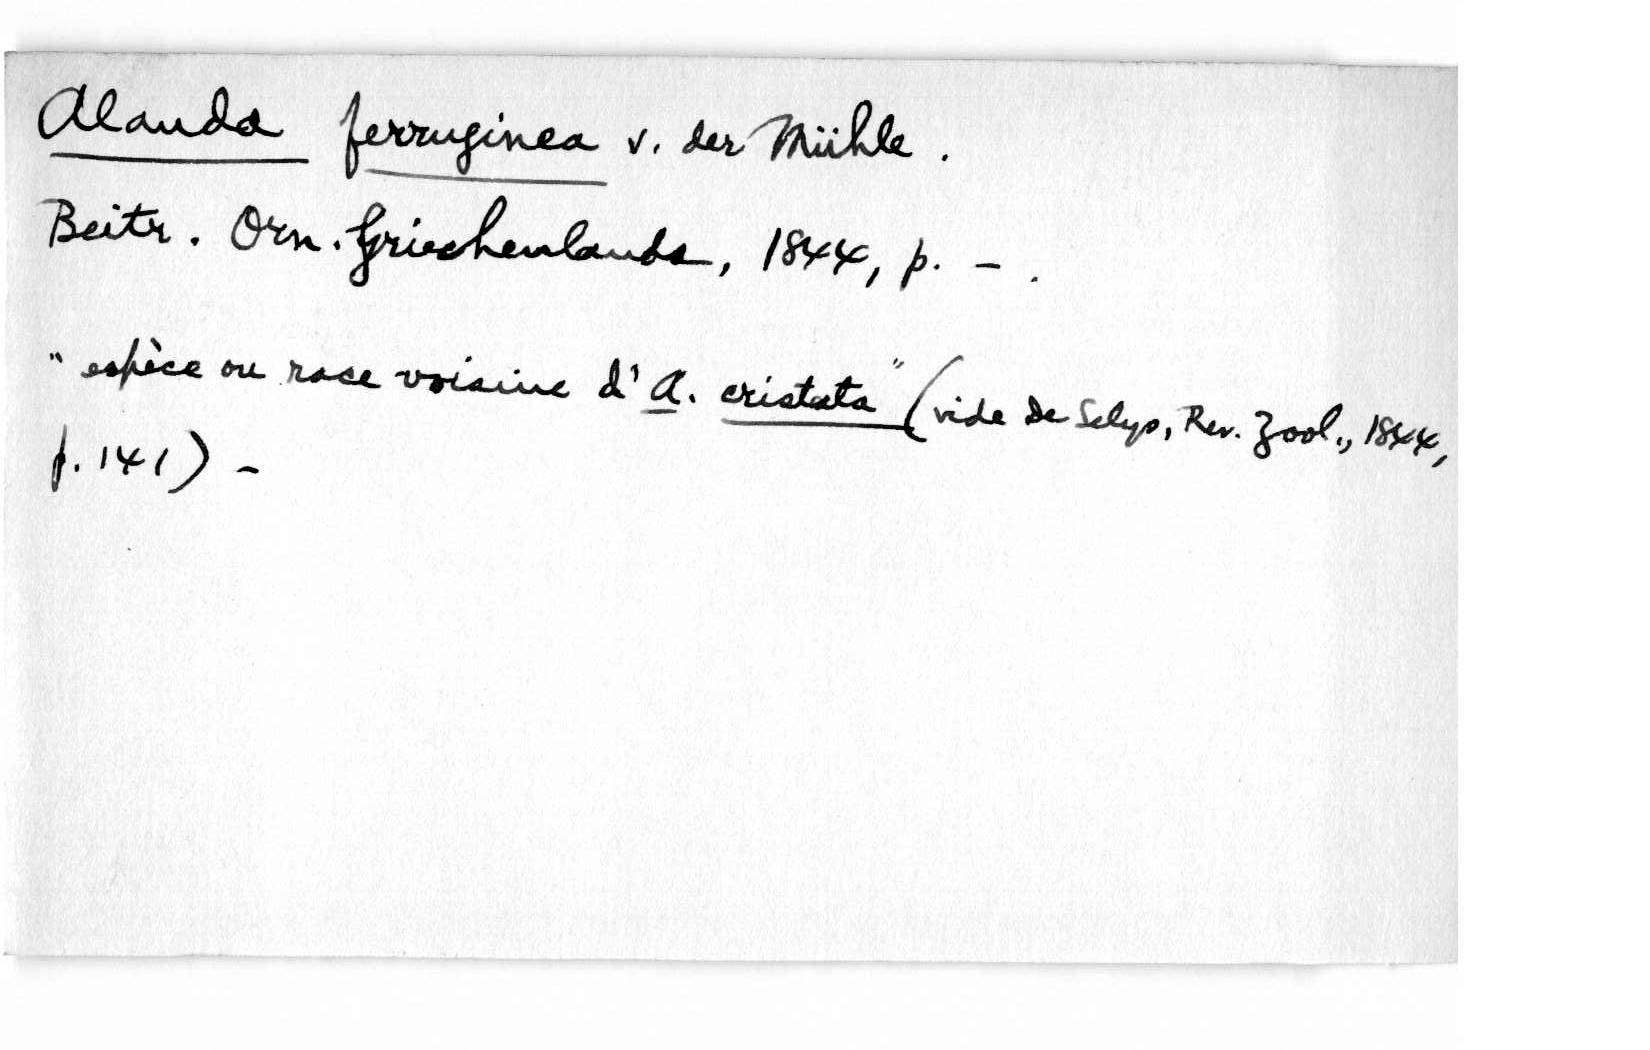 Alauda ferruginea v. der Mühle.
Beitr. Orn. Griechenlands, 1844, p. - .
"espèce ou race voisine d'A. cristata" (vide De Selys, Rev. Zool., 1844,
p. 141) -